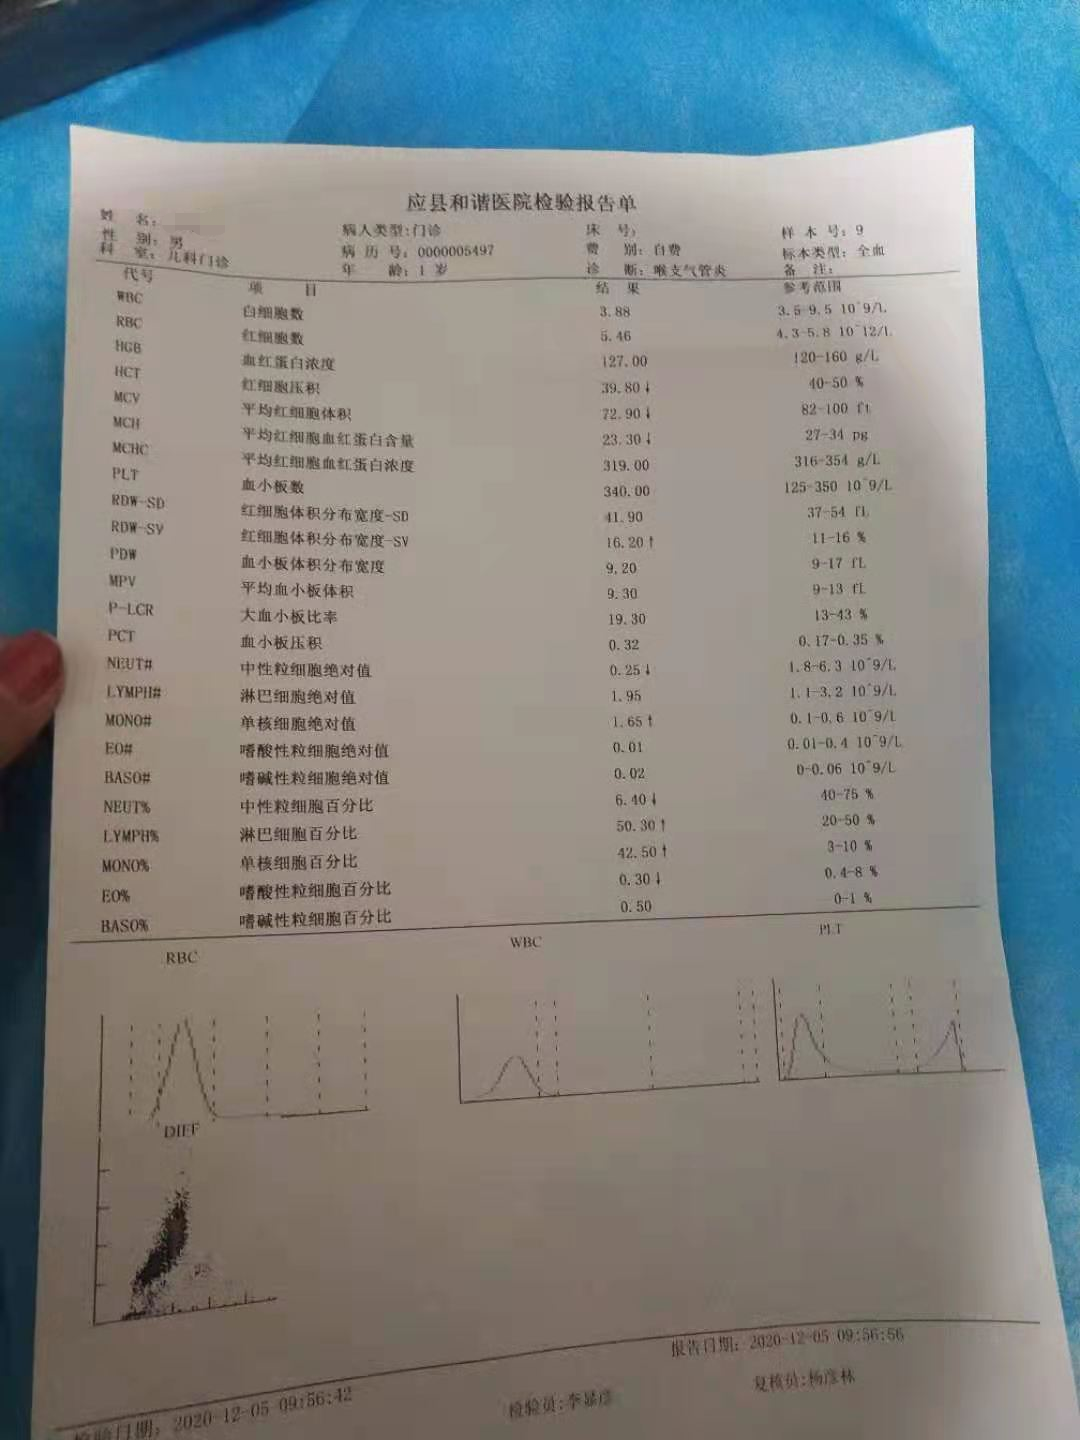 应县和谐医院检验报告单
姓 名: 病人类型:门诊 床 号: 样 本 号: 9
性 别: 男 病 历 号: 0000005497 费 别: 自费 标本类型: 全血
科 室: 儿科门诊 年 龄: 1 岁 诊 断: 喉支气管炎 备 注:
代号 项 目 结 果 参考范围
WBC 白细胞数 3.88 3.5-9.5 10^9/L
RBC 红细胞数 5.46 4.3-5.8 10^12/L
HGB 血红蛋白浓度 127.00 120-160 g/L
HCT 红细胞压积 39.80↓ 40-50 %
MCV 平均红细胞体积 72.90↓ 82-100 fl
MCH 平均红细胞血红蛋白含量 23.30↓ 27-34 pg
MCHC 平均红细胞血红蛋白浓度 319.00 316-354 g/L
PLT 血小板数 340.00 125-350 10^9/L
RDW-SD 红细胞体积分布宽度-SD 41.90 37-54 fL
RDW-SV 红细胞体积分布宽度-SV 16.20↑ 11-16 %
PDW 血小板体积分布宽度 9.20 9-17 fL
MPV 平均血小板体积 9.30 9-13 fL
P-LCR 大血小板比率 19.30 13-43 %
PCT 血小板压积 0.32 0.17-0.35 %
NEUT# 中性粒细胞绝对值 0.25↓ 1.8-6.3 10^9/L
LYMPH# 淋巴细胞绝对值 1.95 1.1-3.2 10^9/L
MONO# 单核细胞绝对值 1.65↑ 0.1-0.6 10^9/L
EO# 嗜酸性粒细胞绝对值 0.01 0.01-0.4 10^9/L
BASO# 嗜碱性粒细胞绝对值 0.02 0-0.06 10^9/L
NEUT% 中性粒细胞百分比 6.40↓ 40-75 %
LYMPH% 淋巴细胞百分比 50.30↑ 20-50 %
MONO% 单核细胞百分比 42.50↑ 3-10 %
EO% 嗜酸性粒细胞百分比 0.30↓ 0.4-8 %
BASO% 嗜碱性粒细胞百分比 0.50 0-1 %
RBC WBC PLT
DIFF
报告日期: 2020-12-05 09:56:56
检验日期: 2020-12-05 09:56:42 检验员:李显彦 复核员:杨彦林